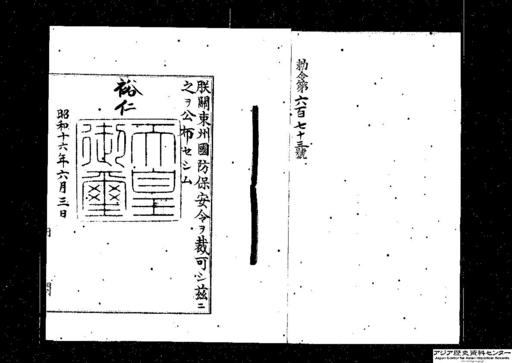 勅令第六百七十三號
朕關東州國防保安令ヲ裁可シ茲ニ
之ヲ公布セシム
裕仁
天皇御璽
昭和十六年六月三日
アジア歴史資料センター
Japan Center for Asian Historical Records